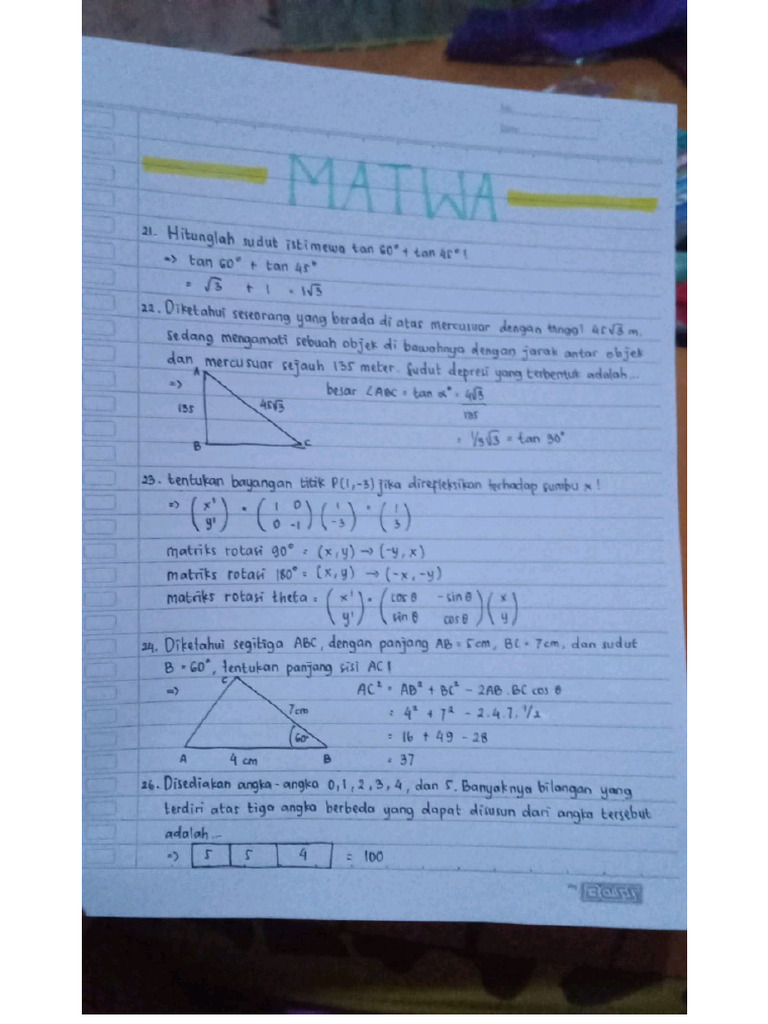 No.
Date
MATWA
21. Hitunglah sudut istimewa tan 60° + tan 45°!
=> tan 60° + tan 45°
= √3 + 1 = 1√3
22. Diketahui seseorang yang berada di atas mercusuar dengan tinggi 45√3 m.
Sedang mengamati sebuah objek di bawahnya dengan jarak antar objek
dan mercusuar sejauh 135 meter. Sudut depresi yang terbentuk adalah...
=> A 135 45√3 B C
besar ∠ABC = tan α° = 45√3
135
= 1/3√3 = tan 30°
23. tentukan bayangan titik P(1,-3) jika direfleksikan terhadap sumbu x!
=> (x' y') = (1 0 0 -1) (1 -3) = (1 3)
matriks rotasi 90° = (x,y) → (-y, x)
matriks rotasi 180° = (x,y) → (-x, -y)
matriks rotasi theta = (x' y') = (cos θ -sin θ sin θ cos θ) (x y)
24. Diketahui segitiga ABC, dengan panjang AB = 5cm, BC = 7cm, dan sudut
B = 60°, tentukan panjang sisi AC!
=> C 7cm 60° A 4 cm B
AC² = AB² + BC² - 2AB.BC cos θ
= 4² + 7² - 2.4.7.1/2
= 16 + 49 - 28
= 37
26. Disediakan angka-angka 0, 1, 2, 3, 4, dan 5. Banyaknya bilangan yang
terdiri atas tiga angka berbeda yang dapat disusun dari angka tersebut
adalah...
=> 5 5 4 = 100